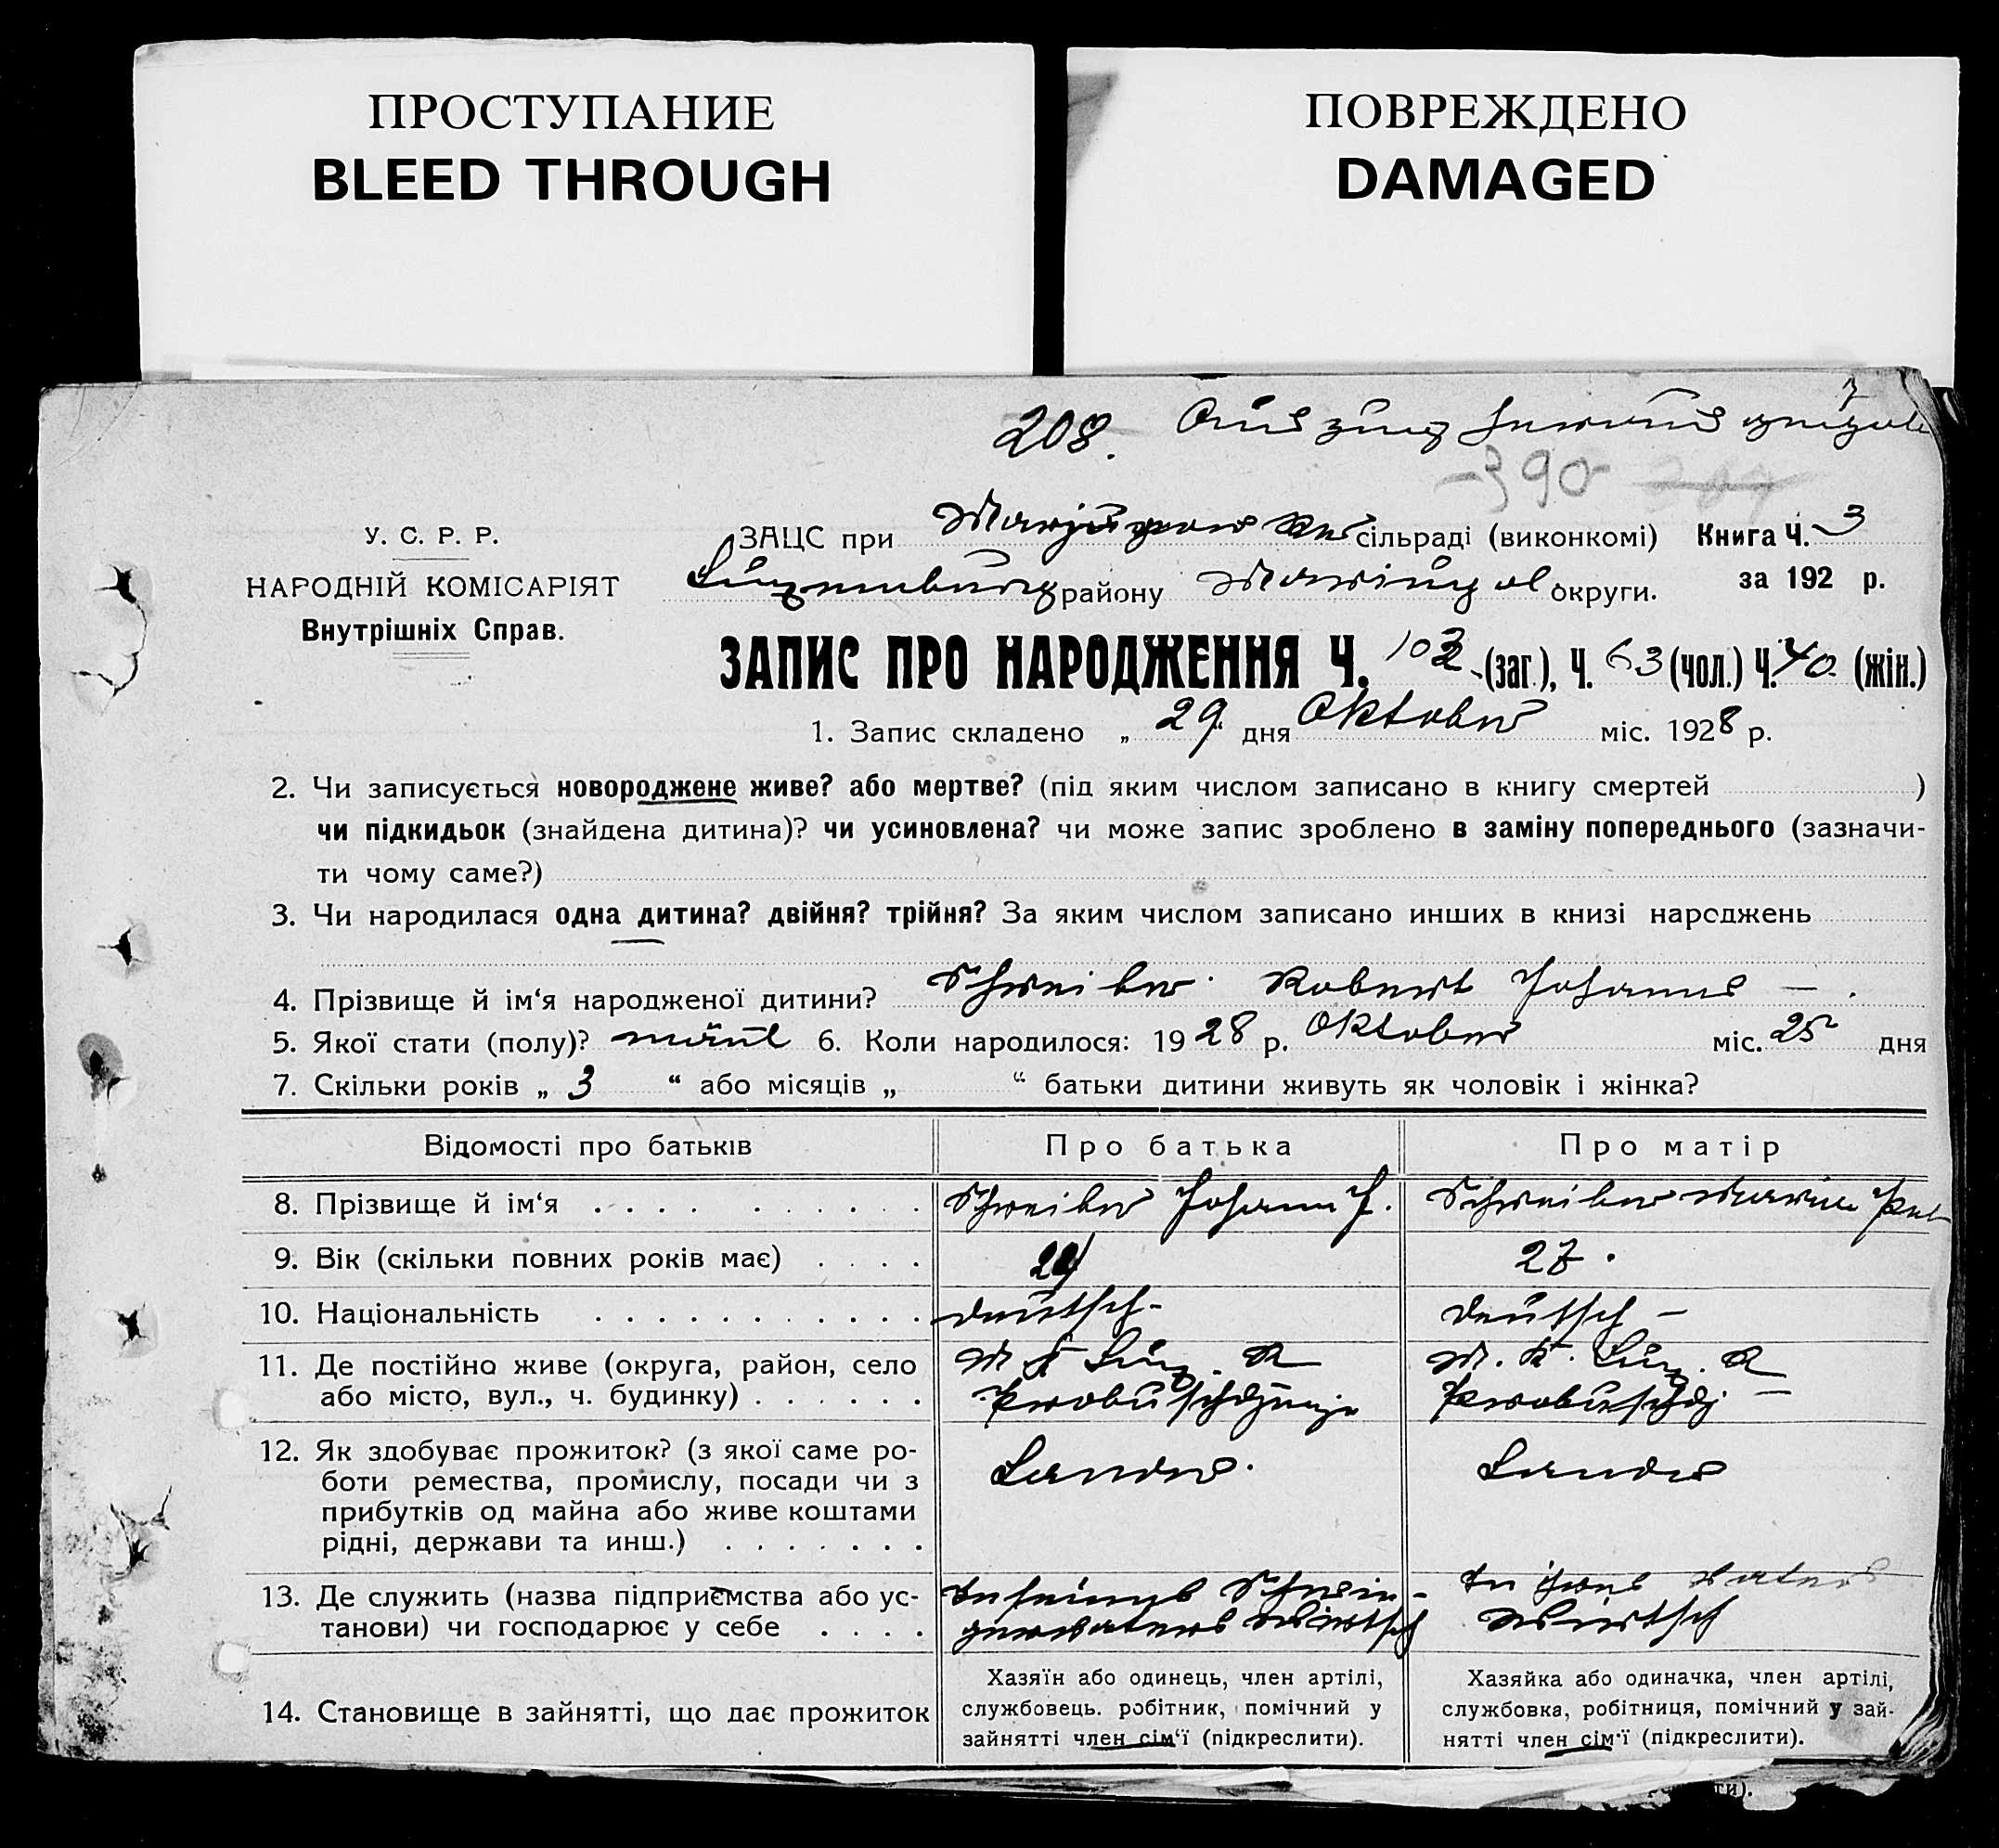 ПРОСТУПАНИЕ
BLEED THROUGH
ПОВРЕЖДЕНО
DAMAGED
7
208. Auszug herausgegeb
390
У. С. Р. Р.
НАРОДНІЙ КОМІСАРІЯТ
Внутрішніх Справ.
ЗАЦС при сільраді (виконкомі) Книга Ч. 3
Luxemburg району Mariupol округи. за 192 р.
ЗАПИС ПРО НАРОДЖЕННЯ Ч. 103 (заг.), Ч. 63 (чол.) Ч. 40 (жін.)
1. Запис складено „ 29 “ дня Oktober міс. 1928 р.
2. Чи записується новороджене живе? або мертве? (під яким числом записано в книгу смертей )
чи підкидьок (знайдена дитина)? чи усиновлена? чи може запис зроблено в заміну попереднього (зазначи-
ти чому саме?)
3. Чи народилася одна дитина? двійня? трійня? За яким числом записано инших в книзі народжень
4. Прізвище й ім‘я народженої дитини? Schreiber Robert Johannes
5. Якої стати (полу)? männl 6. Коли народилося: 1928 р. Oktober міс. 25 дня
7. Скільки років „ 3 “ або місяців „ “ батьки дитини живуть як чоловік і жінка?
Відомості про батьків Про батька Про матір
8. Прізвище й ім‘я Schreiber Johann J. Schreiber Maria
9. Вік (скільки повних років має) 24 27.
10. Національність deutsch- deutsch –
11. Де постійно живе (округа, район, село M. K. Lux. R M. K. Lux. R
або місто, вул., ч. будинку)
12. Як здобуває прожиток? (з якої саме ро- Landw. Landw
боти ремества, промислу, посади чи з
прибутків од майна або живе коштами
рідні, держави та инш.)
13. Де служить (назва підприємства або ус- In seines Schwie- In ihres Vaters
танови) чи господарює у себе gervaters Wirtsch Wirtsch
Хазяїн або одинець, член артілі, Хазяйка або одиначка, член артілі,
14. Становище в зайнятті, що дає прожиток службовець. робітник, помічний у службовка, робітниця, помічний у зай-
зайнятті член сім‘ї (підкреслити). нятті член сім‘ї (підкреслити).
ти).